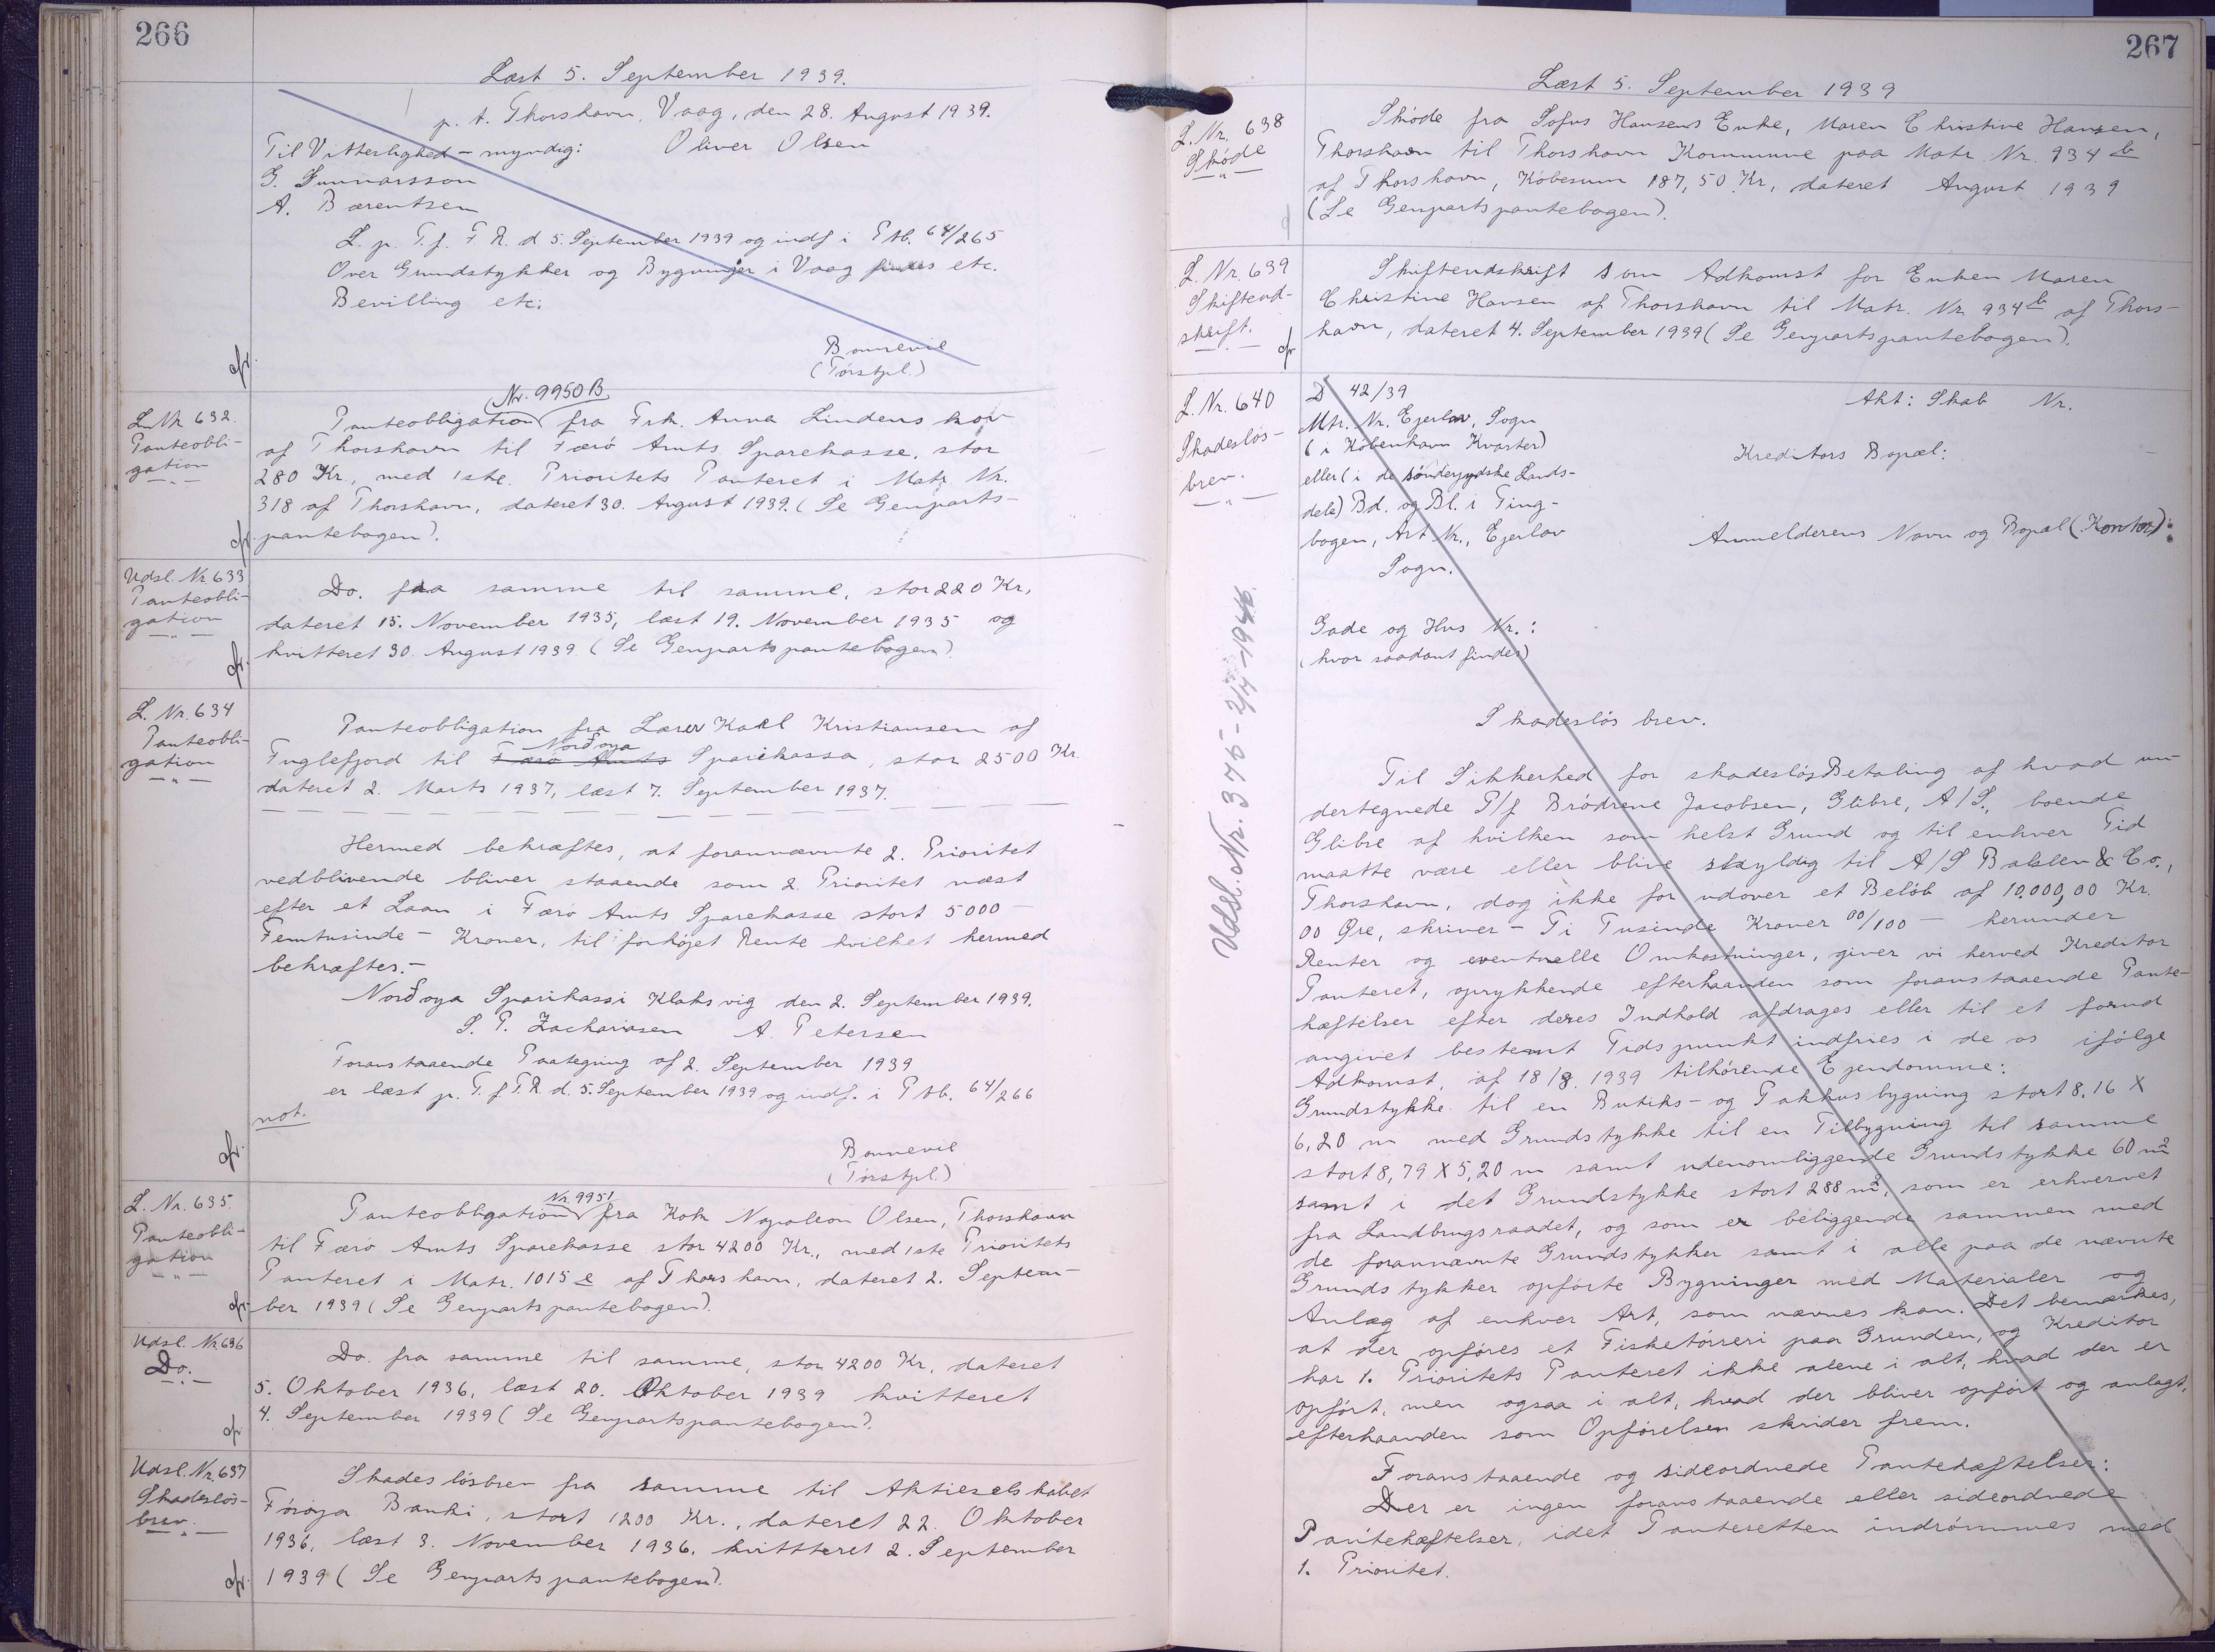 266
Læst 5. September 1939.
p. t. Thorshavn, Vaag, den 28. August 1939.
Til Vitterlighed - myndig: Oliver Olsen
G. Gunnarsson
A. Bærentsen
L. p. T. f. F. R. d. 5. September 1939 og indf i P tb. 64/265
Over Grundstykker og Bygninger i Vaag findes etc.
Bevilling etc:
Bonnevie
(Torstpl.)
cfr.
Nr. 9950 B
L. Nr. 632.
Panteobli-
gation
Panteobligation fra Frk. Anna Lindenskov
af Thorshavn til Færø Amts Sparekasse, stor
280 Kr., med 1ste Prioritets Panteret i Matr. Nr.
318 af Thorshavn, dateret 30. August 1939. (Se Genparts-
pantebogen).
cfr.
Udsl. Nr. 633
Panteobli-
gation
Do. fra samme til samme, stor 220 Kr.,
dateret 15. November 1935, læst 19. November 1935 og
kvitteret 30. August 1939 (Se Genpartspantebogen).
cfr.
L. Nr. 634
Panteobli-
gation
Panteobligation fra Lærer Karl Kristiansen af
Norðoya
Fuglefjord til Færø Amts Sparikassa, stor 2500 Kr.
dateret 2. Marts 1937, læst 7. September 1937.
Hermed bekræftes, at forannævnte 2. Prioritet
vedblivende bliver staaende som 2. Prioritet næst
efter et Laan i Færø Amts Sparekasse stort 5000 -
Femtusinde - Kroner, til forhøjet Rente hvilket hermed
bekræftes.-
Norðoya Sparikassi Klaksvig den 2. September 1939.
S. P. Zachariasen A. Petersen
Foranstaaende Paategning af 2. September 1939
er læst p. T. f. F. R. d. 5. September 1939 og indf. i P tb. 64/266
not.
Bonnevie
(Torstpl.)
cfr.
Nr. 9951
L. Nr. 635.
Panteobli-
gation
Panteobligation fra Kok Napoleon Olsen, Thorshavn
til Færø Amts Sparekasse stor 4200 Kr., med 1ste Prioritets
Panteret i Matr. 1015 e af Thorshavn, dateret 2. Septem-
ber 1939 (Se Genpartspantebogen).
cfr.
Udsl. Nr. 636
Do.
Do. fra samme til samme, stor 4200 Kr., dateret
5. Oktober 1936, læst 20. Oktober 1939 kvitteret
4. September 1939 (Se Genpartspantebogen).
cfr
Udsl. Nr. 637
Skadesløs-
brev.
Skadesløsbrev fra samme til Aktieselskabet
Føroya Banki, stort 1200 Kr., dateret 22. Oktober
1936, læst 3. November 1936, kvittteret 2. September
1939 (Se Genpartspantebogen).
cfr.
267
Læst 5. September 1939
L. Nr. 638
Skøde
Skøde fra Sofus Hansens Enke, Maren Christine Hansen,
Thorshavn til Thorshavn Kommune paa Matr. Nr. 934 b
af Thorshavn, Købesum 187,50 Kr., dateret August 1939
(Se Genpartspantebogen).
L. Nr. 639
Skifteud-
skrift.
Skifteudskrift som Adkomst for Enken Maren
Christine Hansen af Thorshavn til Matr. Nr. 934 b af Thors-
havn, dateret 4. September 1939 (Se Genpartspantebogen).
cfr
L. Nr. 640
Skadesløs-
brev.
Udsl. Nr. 376 - 2/4 - 1946.
D 42/39
Akt: Skab Nr.
Mtr. Nr. Ejerlav, Sogn
(i København Kvarter)
Kreditors Bopæl:
eller (i de sønderjydske Lands-
dele) Bd. og Bl. i Ting-
bogen, Art. Nr., Ejerlav
Anmelderens Navn og Bopæl (Kontor):
Sogn.
Gade og Hus Nr.:
(hvor saadant findes)
Skadesløsbrev.
Til Sikkerhed for skadesløs Betaling af hvad un-
dertegnede P/f Brødrene Jacobsen, Glibre, A/S, boende
Glibre af hvilken som helst Grund og til enhver Tid
maatte være eller blive skyldig til A/S Balslev & Co.,
Thorshavn, dog ikke for udover et Beløb af 10.000,00 Kr.
00 Øre, skriver - Ti Tusinde Kroner 00/100 - herunder
Renter og eventuelle Omkostninger, giver vi herved Kreditor
Panteret, oprykkende efterhaanden som foranstaaende Pante-
hæftelser efter deres Indhold afdrages eller til et forud
angivet bestemt Tidspunkt indfries i de os ifølge
Adkomst, af 18/8. 1939 tilhørende Ejendomme:
Grundstykke til en Butiks- og Pakhusbygning stort 8,16 X
6,20 m med Grundstykke til en Tilbygning til samme
stort 8,79 X 5,20 m samt udenomliggende Grundstykke 60 m²
samt i det Grundstykke stort 288 m², som er erhvervet
fra Landbrugsraadet, og som er beliggende sammen med
de forannævnte Grundstykker samt i alle paa de nævnte
Grundstykker opførte Bygninger med Materialer og
Anlæg af enhver Art, som nævnes kan. Det bemærkes,
at der opføres et Fisketørreri paa Grunden, og Kreditor
har 1. Prioritets Panteret ikke alene i alt, hvad der er
opført, men ogsaa i alt, hvad der bliver opført og anlagt,
efterhaanden som Opførelsen skrider frem.
Foranstaaende og sideordnede Pantehæftelser:
Der er ingen foranstaaende eller sideordnede
Pantehæftelser, idet Panteretten indrømmes med
1. Prioritet.